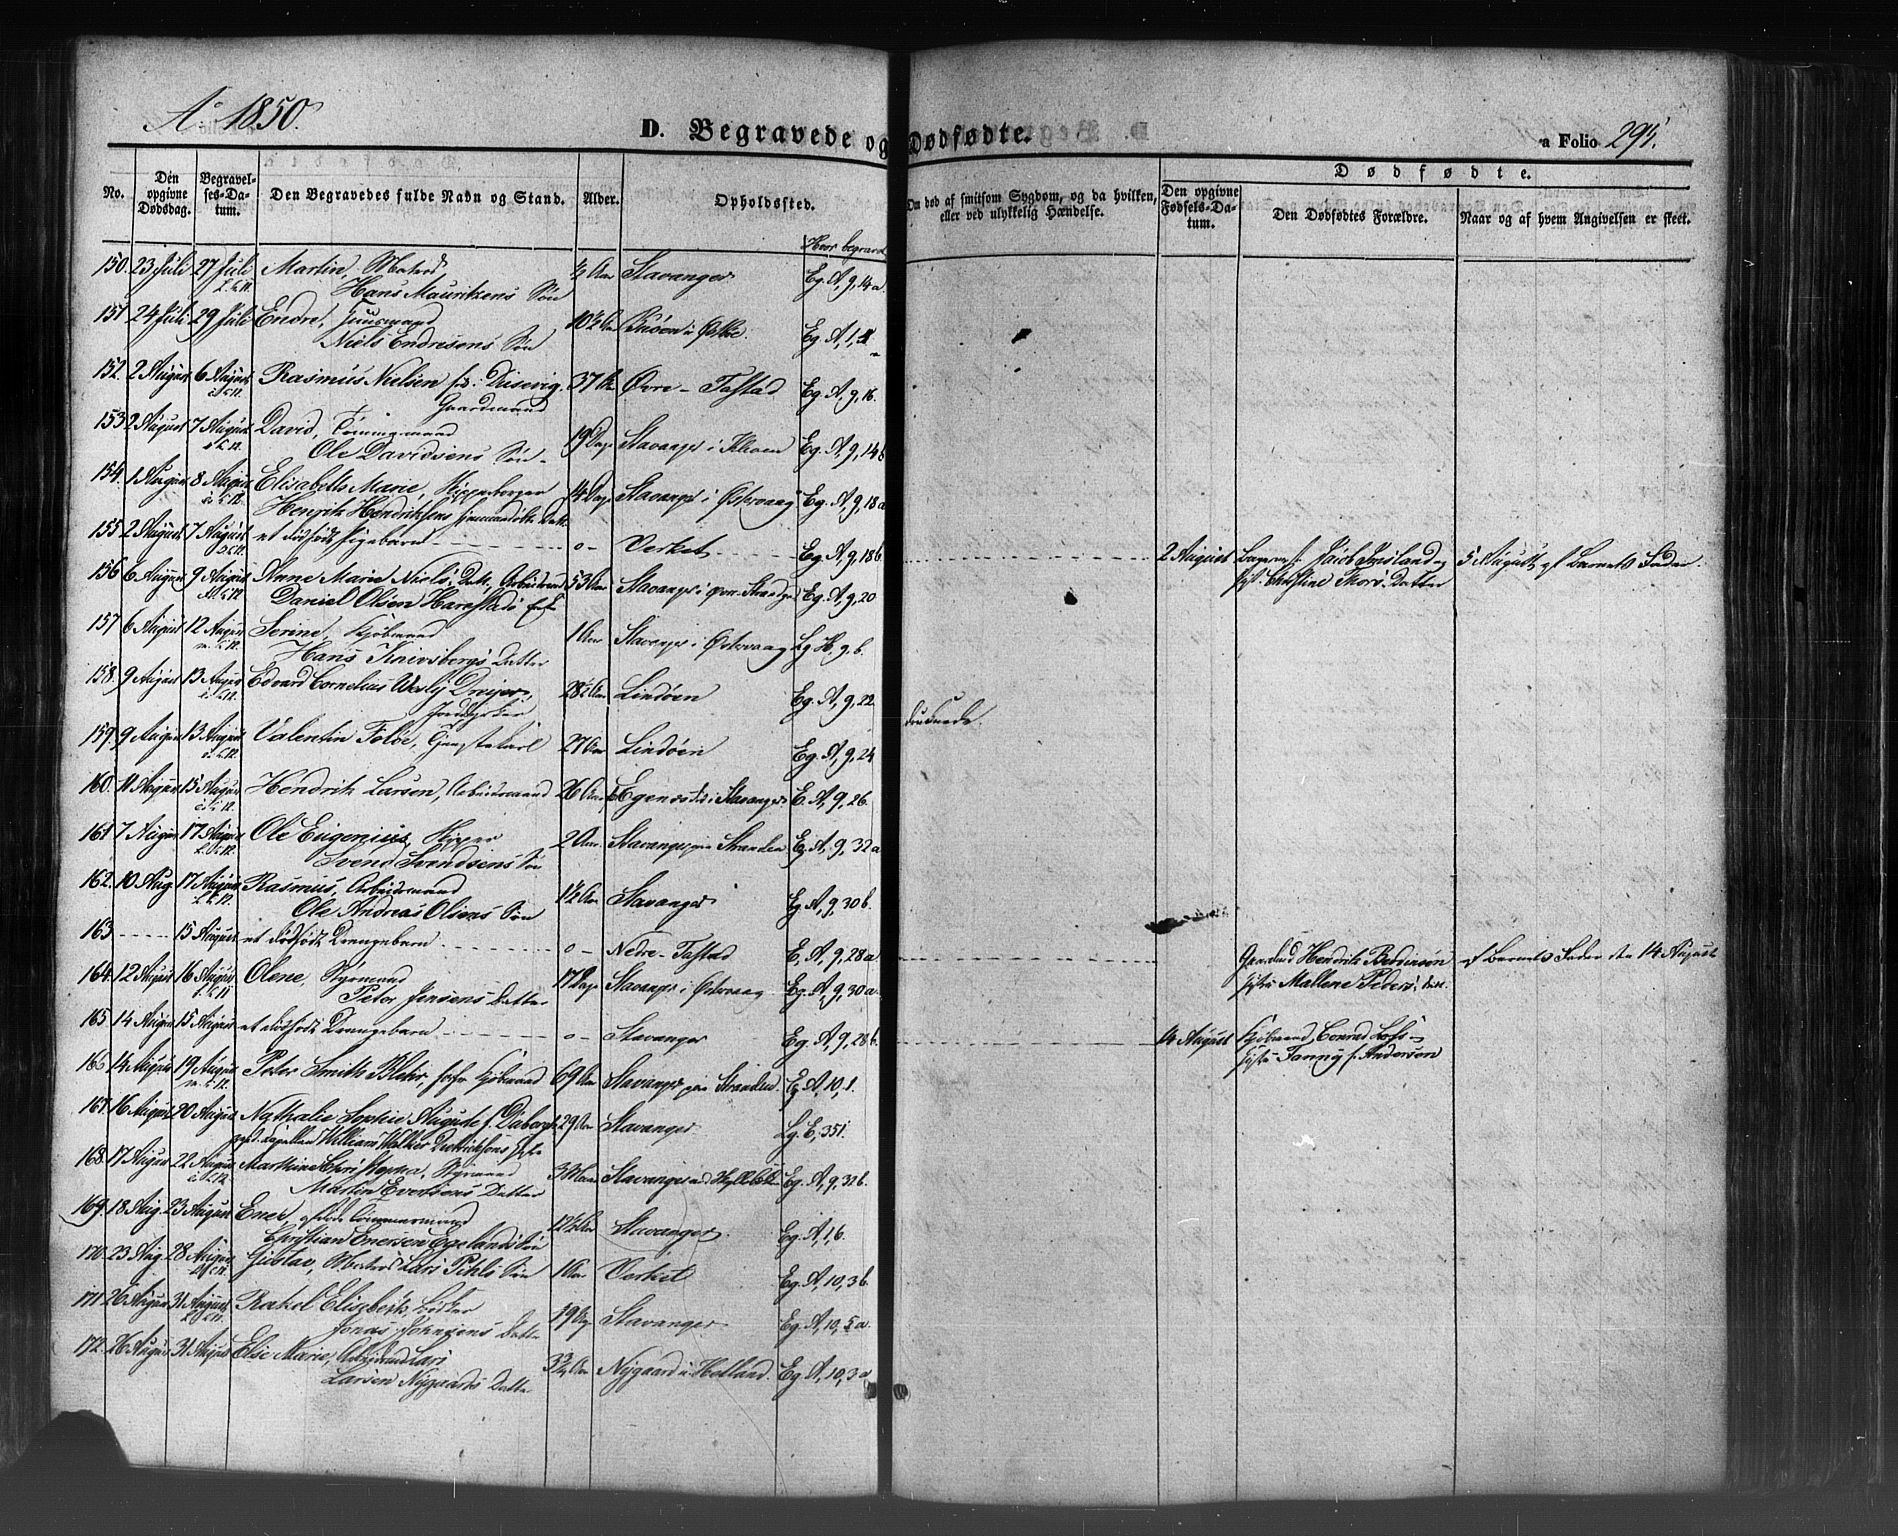 Aº 1850.
D. Begravede og Dødfødte.
a Folio 295.
No.
Den opgivne Dødsdag.
Begravelses-Datum.
Den Begravedes fulde Navn og Stand.
Alder.
Opholdssted.
Hvor begravet
Om død af smitsom Sygdom, og da hvilken, eller ved ulykkelig Hændelse.
Dødfødte.
Den opgivne Fødsels-Datum.
Den Dødfødtes Forældre.
Naar og af hvem Angivelsen er skeet.
150. 23 Juli 27 Juli Martin, Matros ½ Aar Stavanger Eg. A, 9, 14 a.
Hans Mauritzens Søn
151 24 Juli 29 Juli Endre, Huusmand 10½ Aar Eg. A, 1, 4
Niels Endresens Søn
152. 2 August 6 August Rasmus Nielsen Dusevig, 37 Aar Øvre-Tastad Eg. A, 9, 16.
Gaardmand
153 2 August 7 August David, Tømmermand 19 Dage Stavanger i Kleven Eg. A, 9, 14 b
Ole Davidsens Søn
154. 1 August 8 August Elisabeth Marie, 14 Dage Stavanger i Østervaag Eg. A, 9, 18 a
Henrik Hendriksens Datter
155 2 August 7 August et dødfødt Pigebarn o Verket Eg. A, 9, 18 b. 2 August Jacob 5 August af Barnets Fader.
Christine Thors. Datter
156 6 August 9 August Anne Marie Niels. Datt., Arbeidsmand 53 Aar Stavanger i Øvre Strandgd Eg. A, 9, 20
Daniel Olsen Harestads
157 6 August 12 August Serine, Kjøbmand 1 Aar Stavanger i Østervaag Lg. H, 9, 6.
Hans Knivsbergs Datter
158. 9 August 13 August Edvard Cornelius Wesly Dreijer, 28½ Aar Lindøen Eg. A, 9, 22 druknede.
Jorddyrker
159. 9 August 13 August Valentin Foloe, Tjenestekarl 27 Aar Lindøen Eg. A, 9, 24
160. 11 August 15 August Hendrik Larsen, Arbeidsmand 26 Aar Egenæs i Stavanger E. A, 9, 26.
161 7 August 17 August Ole Eugenius, Skipper 2 Aar Stavanger paa Stranden Eg. A, 9, 32 a
Svend Svendsens Søn
162. 10 Aug. 17 August Rasmus, Arbeidsmand 1½ Aar Stavanger Eg. A, 9, 30 b.
Ole Andreas Olsens Søn
163 15 August et dødfødt Drengebarn o Nedre-Tastad E, A, 9, 28 a Gaardmd Hendrik Berdinsen af Barnets Fader den 14 August
Mallene Peders. Datt.
164. 12 August 16 August Olene, Styrmand 17 Dage Stavanger i Østervaag Eg. A, 9, 30 a
Peter Jensens Datter
165 14 August 15 August et dødfødt Drengebarn o Stavanger Eg. A, 9, 28 b. 14 August Kjøbmand, Conrad
Fanny f. Andersen
166 14 August 19 August Peter Smith Blehr, Kjøbmand 69 Aar Stavanger paa Stranden Eg. A, 10, 1.
167. 16 August 20 August Nathalie Sophie Auguste f. 29 Aar Stavanger Lg. E, 351.
William Walker Diedriksons
168. 17 August 22 August Martine Christopha, Styrmand 3 Stavanger ved Eg. A, 9, 32 b.
Martin Evertsens Datter
169. 18 Aug. 23 August Ener, Tømmermand 12½ Aar Stavanger Eg. A, 1, 6.
Christian Enersen Egelands Søn
170. 23 Aug. 28 August Gustav, Matros Lars Pihls Søn 1 Aar Verket Eg. A, 10, 3 b.
171 26 August 31 August Rakel Elisabeth, Bødker 19 Stavanger Eg. A, 10, 5 a.
Jonas Johnsens Datter
172. 26 August 31 August Else Marie, Arbeidsmand Lars 3¾ Aar Nygaard i Hetland. Eg. A, 10, 3 a
Larsen Nygaards Datter